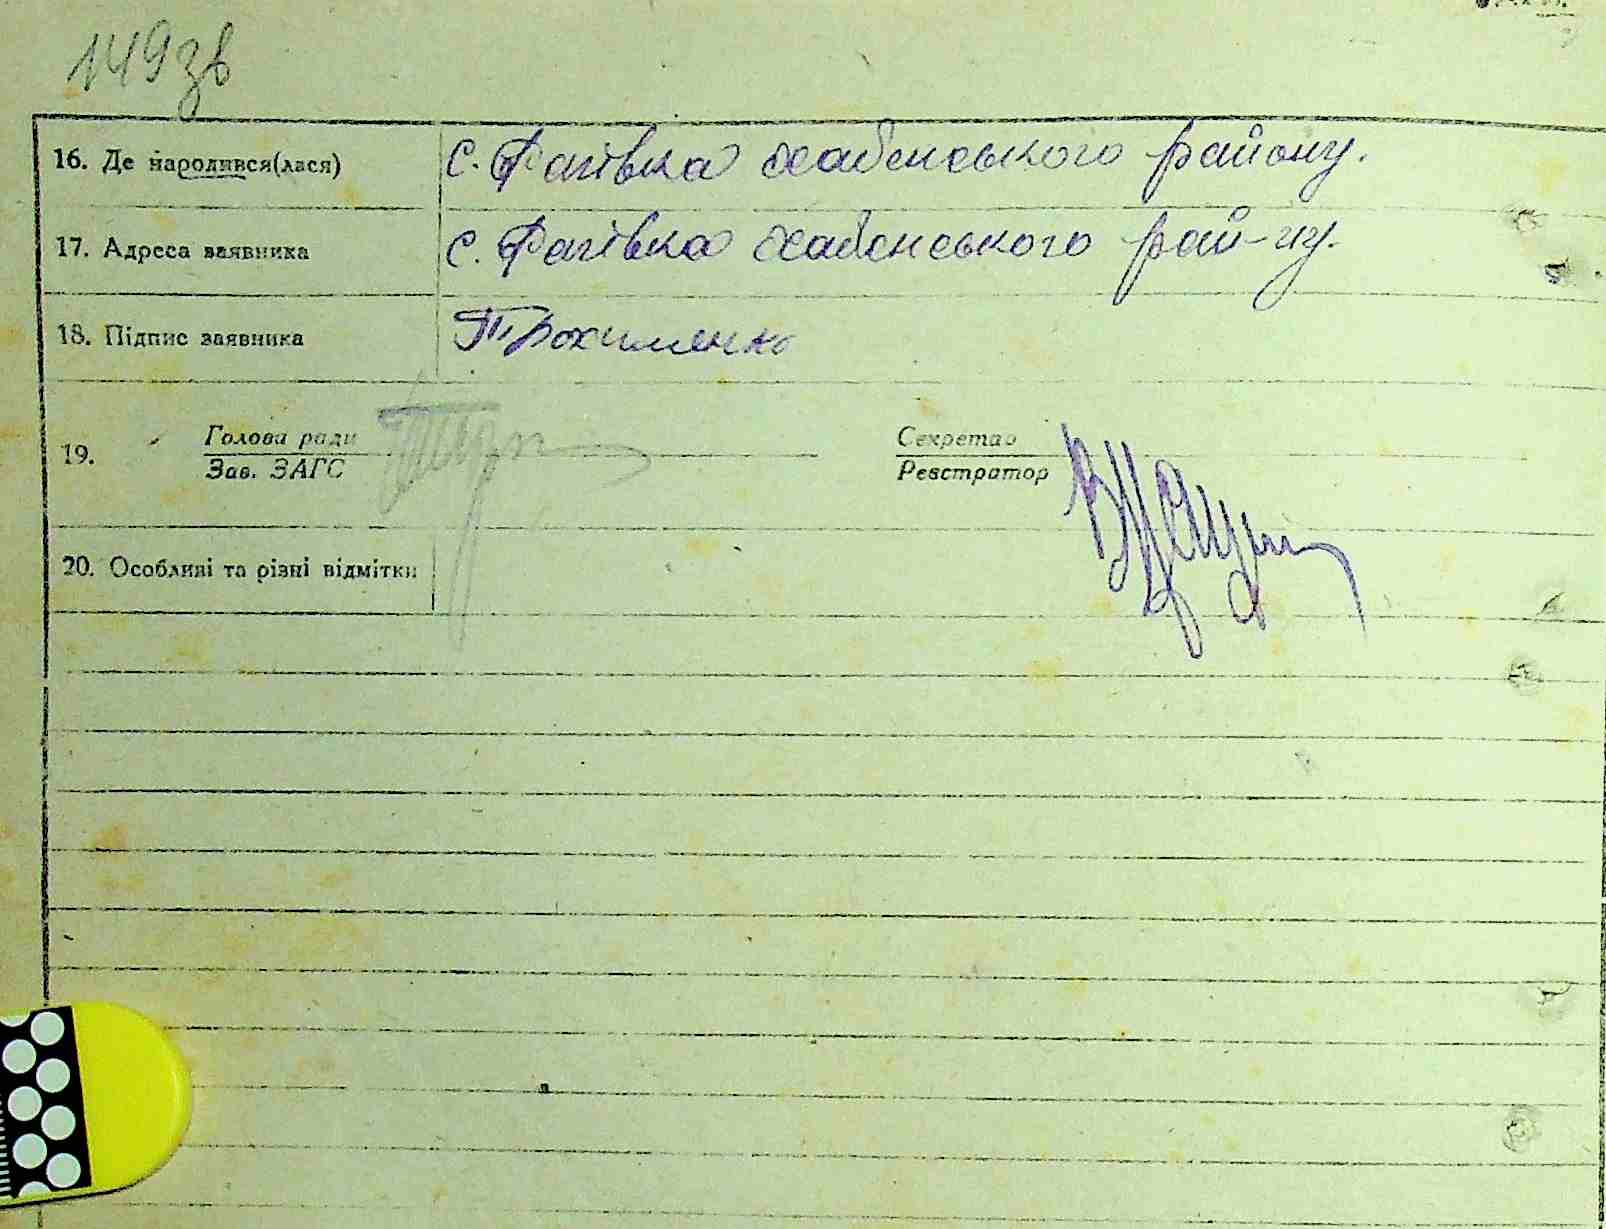 149зв
16. Де народився(лася) с. Рагівка Хабенського району.
17. Адреса заявника с. Рагівка Хабенського рай-ну.
18. Підпис заявника Трохименко
19. Голова ради
Зав. ЗАГС
Секретар
Реєстратор
20. Особливі та різні відмітки